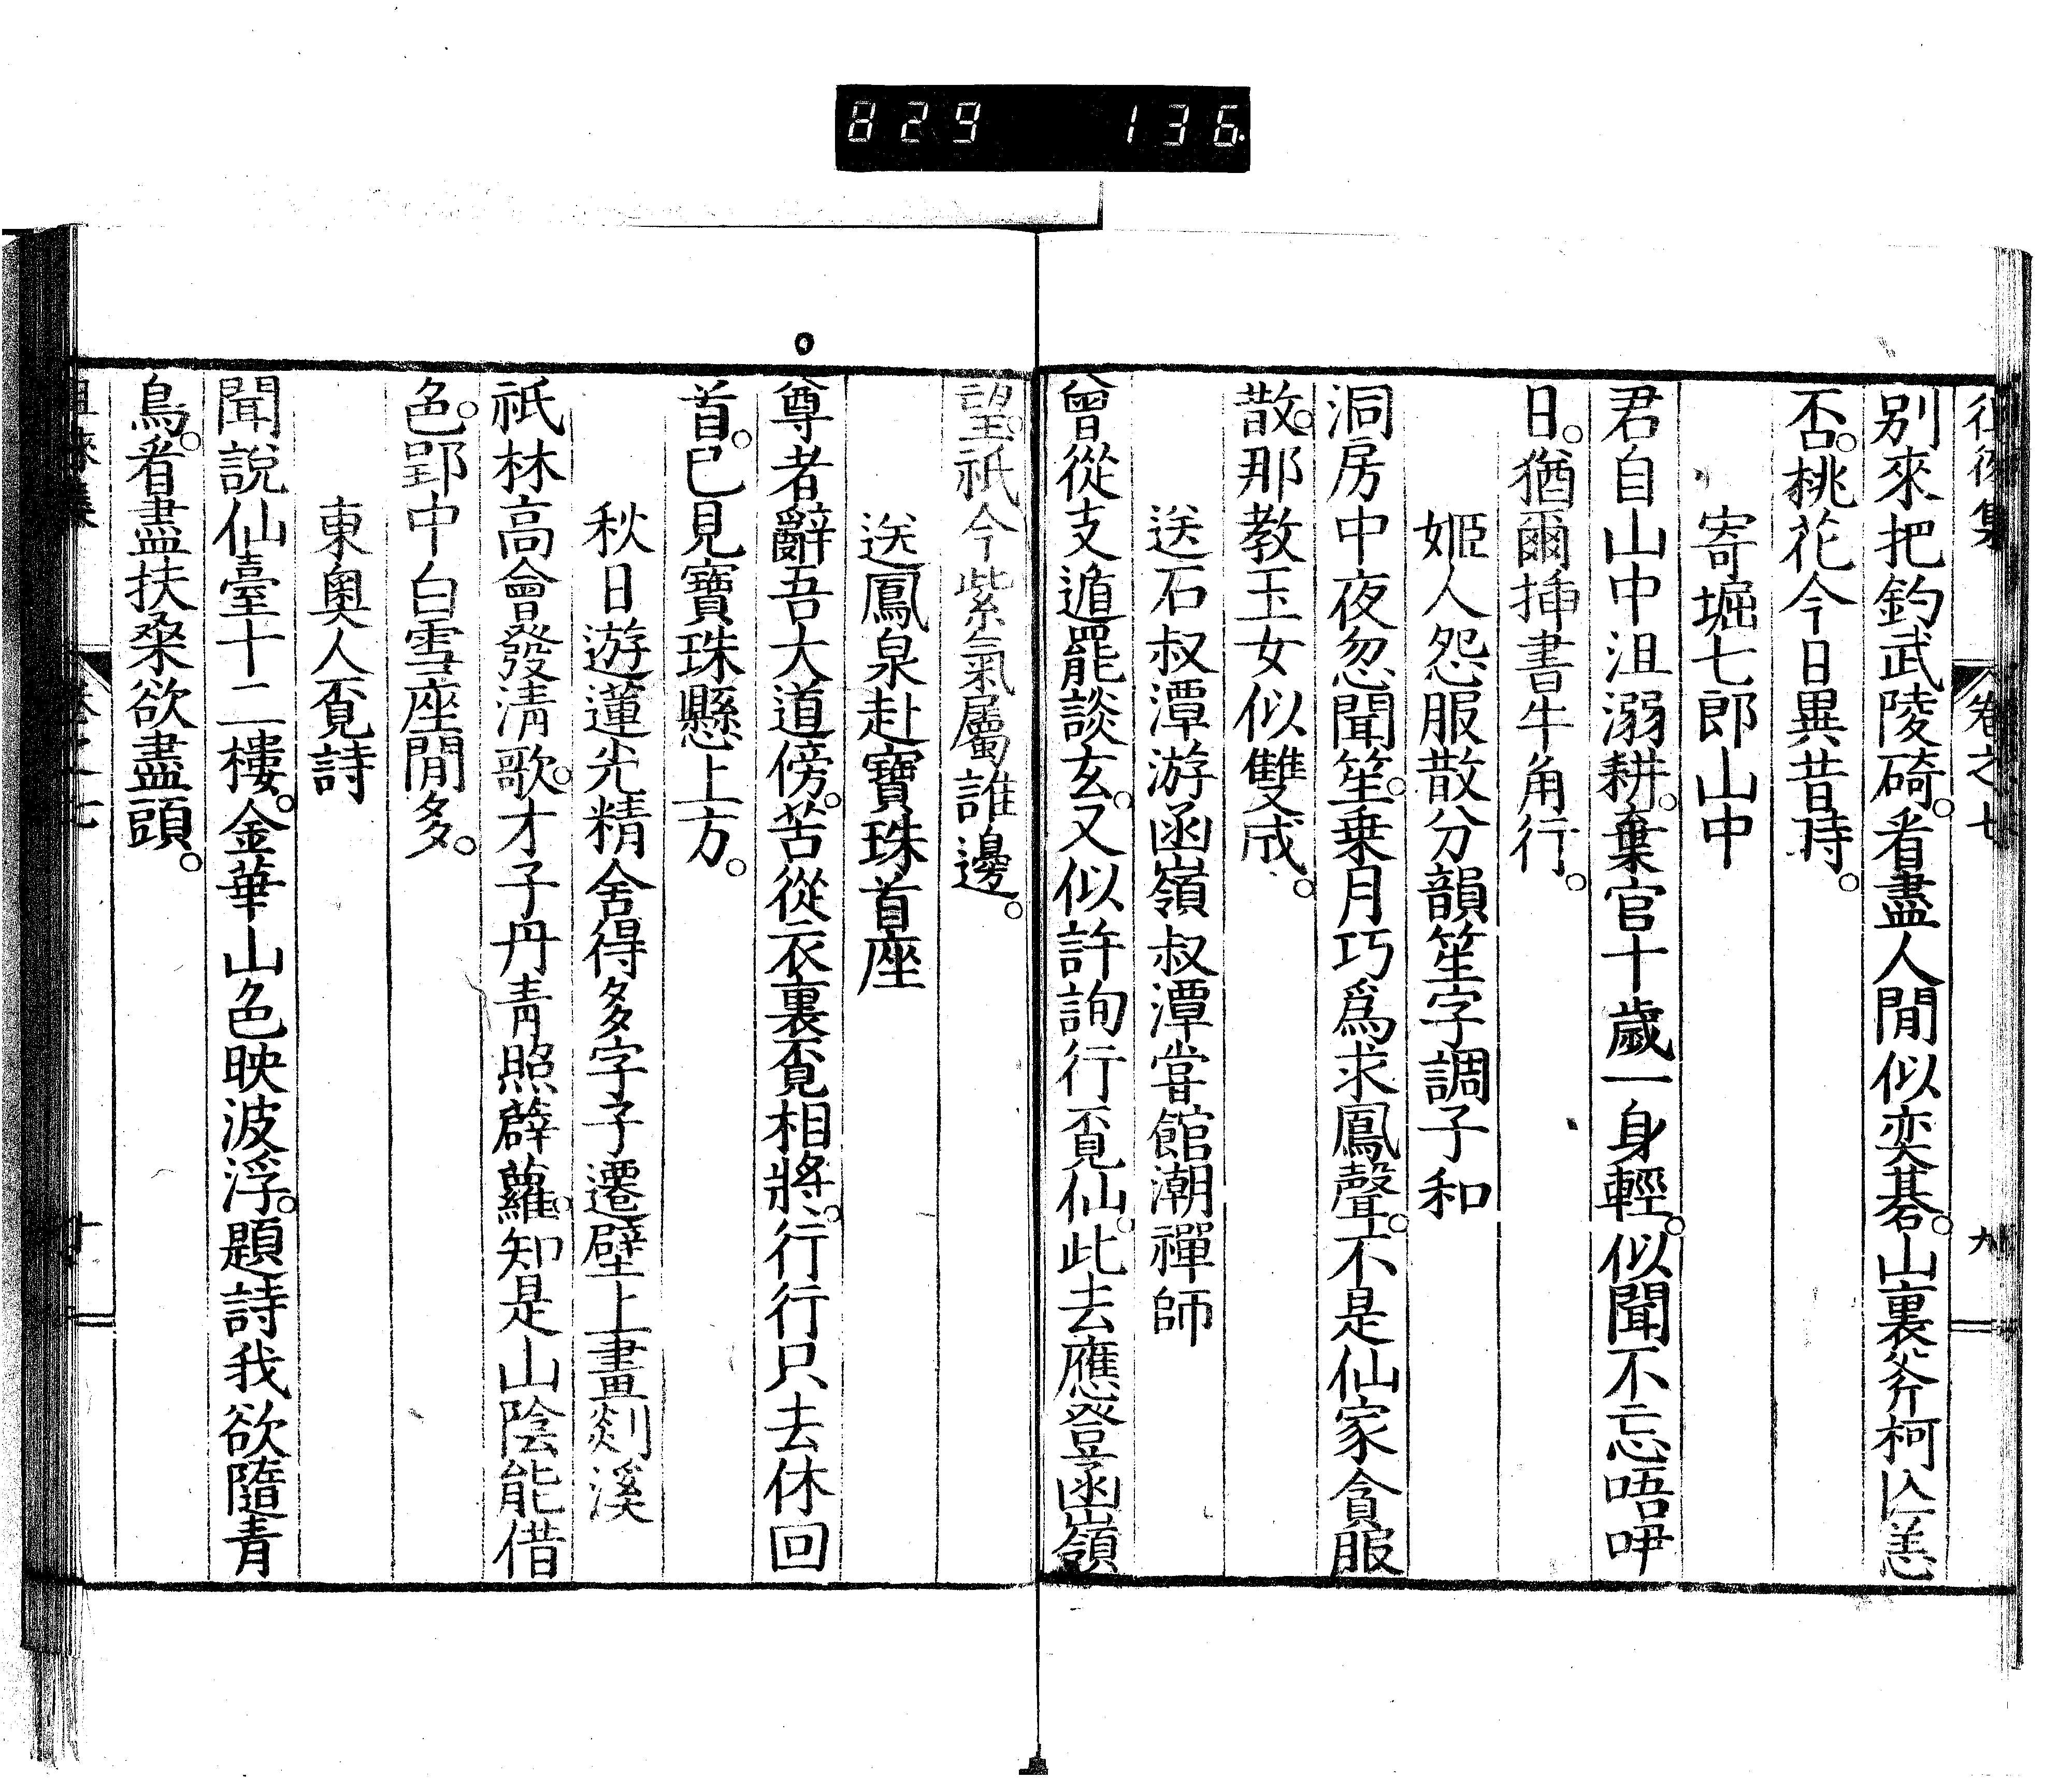 829 136
徂徠集 卷之七 九
別來把釣武陵磯。看盡人間似奕碁。山裏斧柯仏恙
否。桃花今日異昔時。
寄堀七郎山中
君自山中沮溺耕。棄官十歲一身輕。似聞不忘唔咿
日。猶爾揷書牛角行。
姬人怨服散分韻笙字調子和
洞房中夜忽聞笙。乗月巧爲求鳳聲。不是仙家貪服
散。那教玉女似雙成。
送石叔潭游函嶺叔潭嘗館潮禪師
曾從支遁罷談玄。又似許詢行覔仙。此去應登函嶺
望。祇今紫氣屬誰邊。
送鳳泉赴寶珠首座
尊者辭吾大道傍。苦從衣裏覔相將。行行只去休回
首。已見寶珠懸上方。
秋日遊蓮光精舍得多字子遷壁上畫剡溪
祇林高會發淸歌。才子丹青照薜蘿。知是山陰能借
色。郢中白雪座間多。
東奧人覔詩
聞說仙臺十二樓。金華山色映波浮。題詩我欲隨青
鳥。看盡扶桒欲盡頭。
徂徠集 卷之七 十